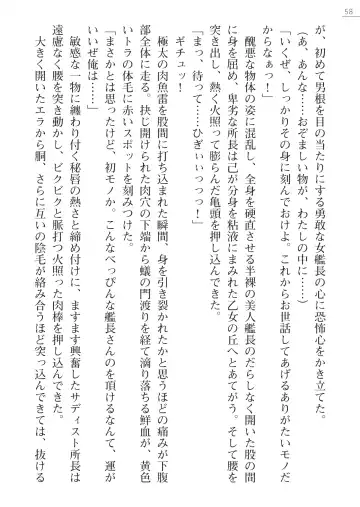 58
が、初めて男根を目の当たりにする勇敢な女艦長の心に恐怖心をかき立てた。
（あ、あんな……おぞましい物が、わたしの中に……）
「いくぜ、しっかりその身に刻んでおけよ。これからお世話してあげるありがたいモノだ
からなぁっ！」
醜悪な物体の姿に混乱し、全身を硬直させる半裸の美人艦長のだらしなく開いた股の間
に身を屈め、卑劣な所長は己が分身を粘液にまみれた乙女の丘へとあてがう。そして腰を
突き出し、熱く火照って膨らんだ亀頭を押し込んできた。
「まっ、待って……っひぎぃぃっっっ！」
ギチュッ！
極太の肉魚雷を股間に打ち込まれた瞬間、身を引き裂かれたかと思うほどの痛みが下腹
部全体に走る。抉じ開けられた肉穴の下端から蟻の門渡りを経て滴り落ちる鮮血が、黄色
いトラの体毛に赤いスポットを刻みつけた。
「まさかとは思ったけど、初モノか。こんなべっぴんな艦長さんのを頂けるなんて、運が
いいぜ俺は……」
敏感な一物に纏わり付く秘唇の熱さと締め付けに、ますます興奮したサディスト所長は
遠慮なく腰を突き動かし、ビクビクと脈打つ火照った肉棒を押し込んできた。
大きく開いたエラから胴、さらに互いの陰毛が絡み合うほど突っ込んできては、抜ける